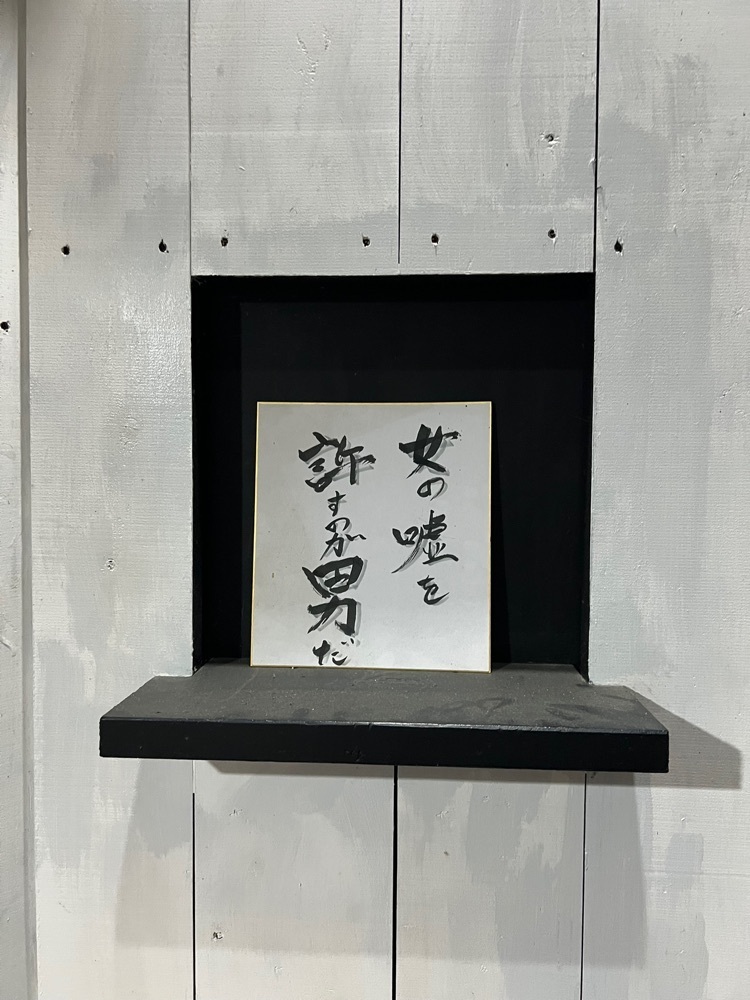 女の嘘を
許すのが男だ